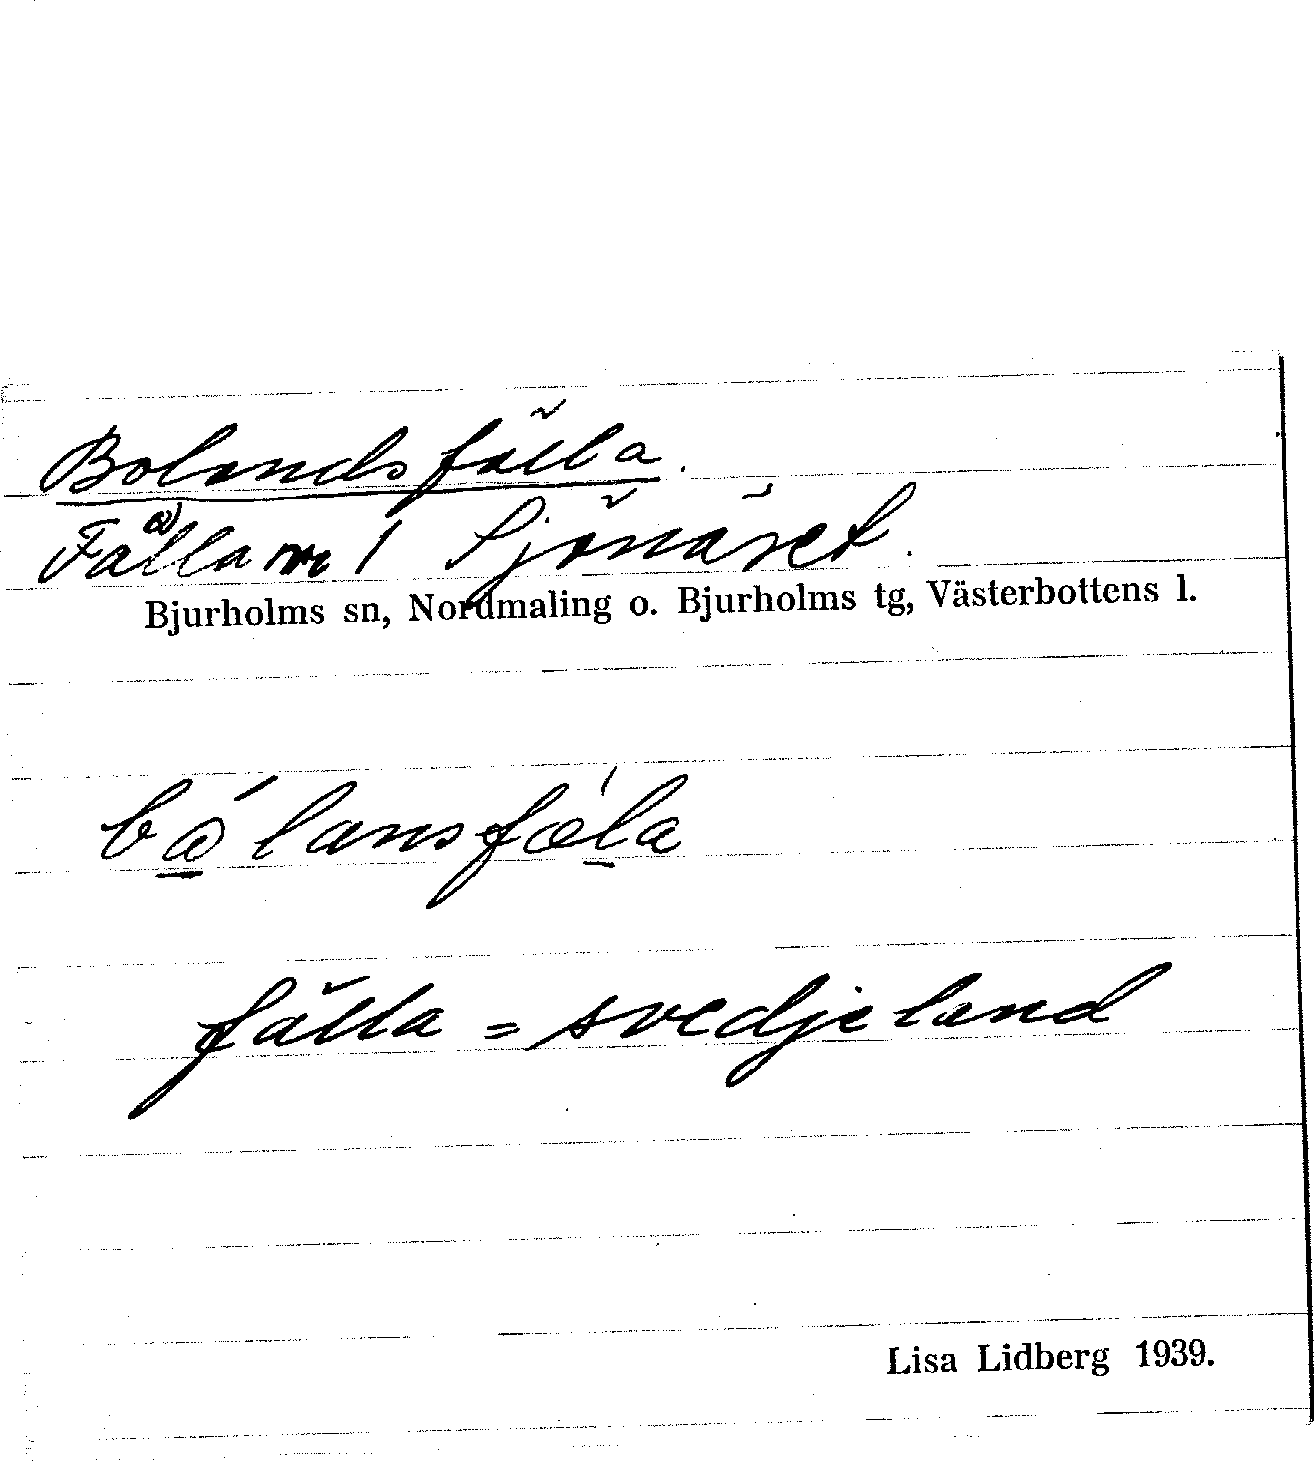 Bolandsfälla.
Fälla m 1 Sjönäset.
Bjurholms sn, Nordmaling o. Bjurholms tg, Västerbottens l.
fälla = svedjeland
Lisa Lidberg 1939.